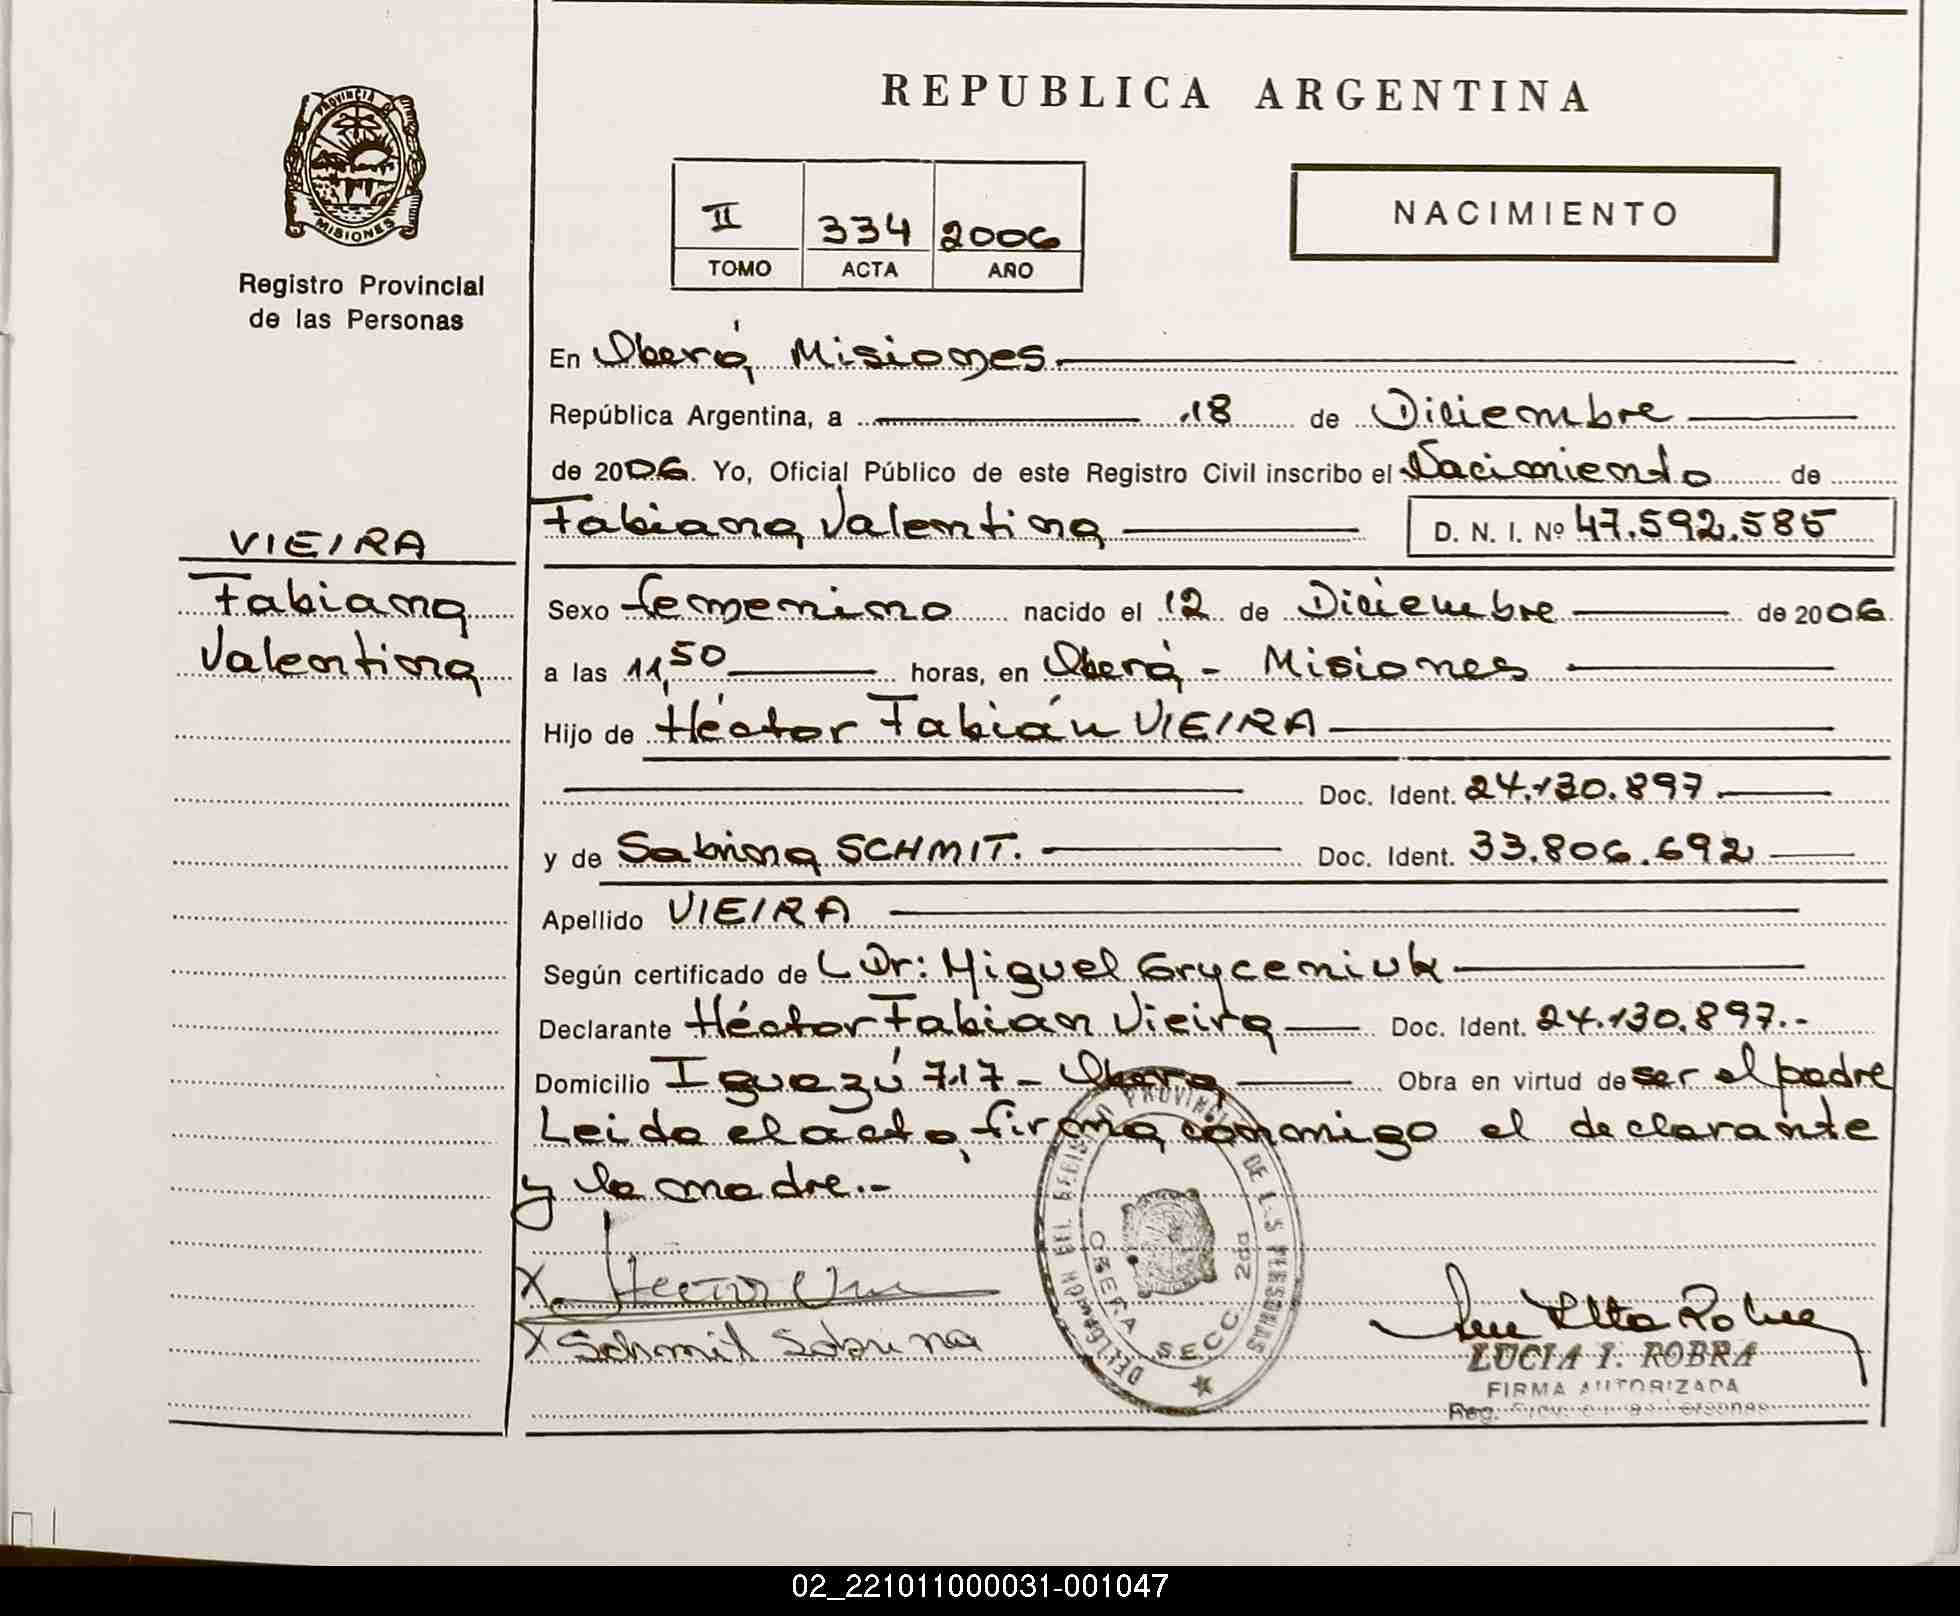 REPUBLICA ARGENTINA
PROVINCIA D
MISIONES
Registro Provincial
de las Personas
II 334 2006
TOMO ACTA AÑO
NACIMIENTO
En Oberá, Misiones
República Argentina, a 18 de Diciembre
de 2006. Yo, Oficial Público de este Registro Civil inscribo el Nacimiento de
Fabiana Valentina D. N. I. Nº 47.592.585
VIEIRA
Fabiana
Valentina
Sexo femenino nacido el 12 de Diciembre de 2006
a las 11,50 horas, en Oberá - Misiones
Hijo de Héctor Fabián VIEIRA
Doc. Ident. 24.130.897
y de Sabrina SCHMIT. Doc. Ident. 33.806.692
Apellido VIEIRA
Según certificado de Dr: Miguel Gryceniuk
Declarante Héctor Fabian Vieira Doc. Ident. 24.130.897.-
Domicilio Iguazú 717 - Obera Obra en virtud de ser el padre
Leido el acto, firma conmigo el declarante
y la madre.-
DELEGACION DEL REGISTRO PROVINCIAL DE LAS PERSONAS
OBERA SECC. 2da
X Hector
X Schmit Sabrina
LUCIA I. ROBRA
FIRMA AUTORIZADA
Reg.
02_221011000031-001047